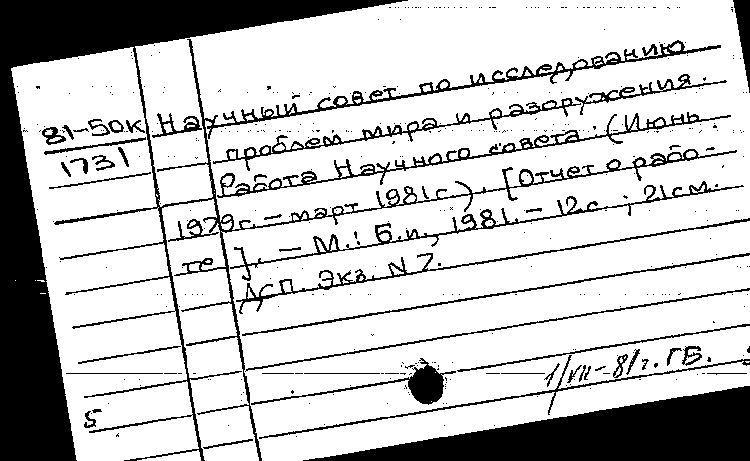 81-50к Научный совет по исследованию
1731 проблем мира и разоружения.
Работа Научного совета (Июнь
1979г. – март 1981г.). [Отчет о рабо-
те]. – М.: Б.и., 1981. – 12с.; 21см.
ДСП. Экз. N 7.
1/VII-81г. ГБ.
5